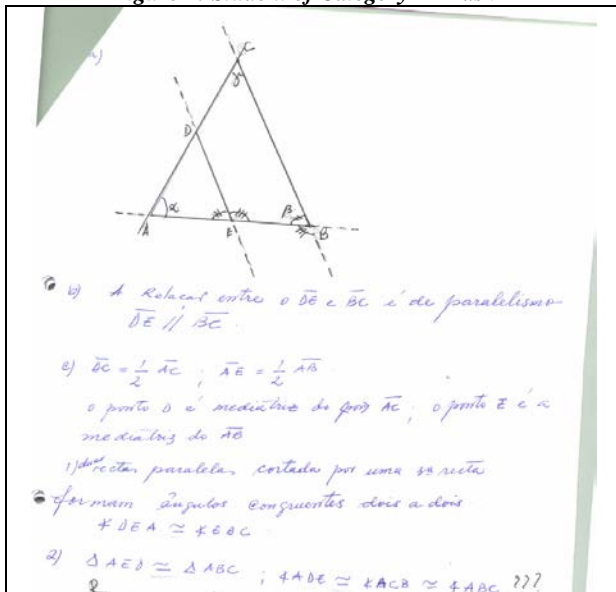 a)
C
γ
D
α
β
A
E
B
b) A Relacas entre o D̅E̅ e B̅C̅ é de paralelismo
D̅E̅ // B̅C̅.
c) D̅C̅ = 1/2 A̅C̅ ; A̅E̅ = 1/2 A̅B̅
o ponto D é mediátriz do A̅C̅ ; o ponto E é a
mediátriz do A̅B̅
1) duas rectas paralelas cortada por uma 3ª recta
formam ângulos congruentes dois a dois
∢DEA ≅ ∢EBC
2) ΔAED ≅ ΔABC ; ∢ADE ≅ ∢ACB ≅ ∢ABC ???